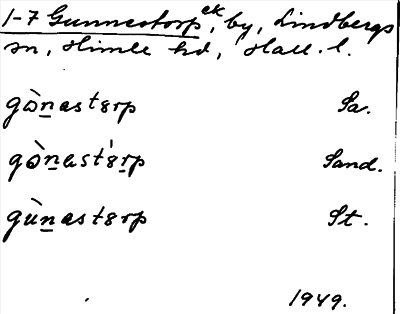 1-7 Gunnestorp ek, by, Lindbergs
sn, Himle hd, Hall. l.
gònastɛrp Sa.
gònast'ɛrp Sand.
gùnastɛrp St.
1949.